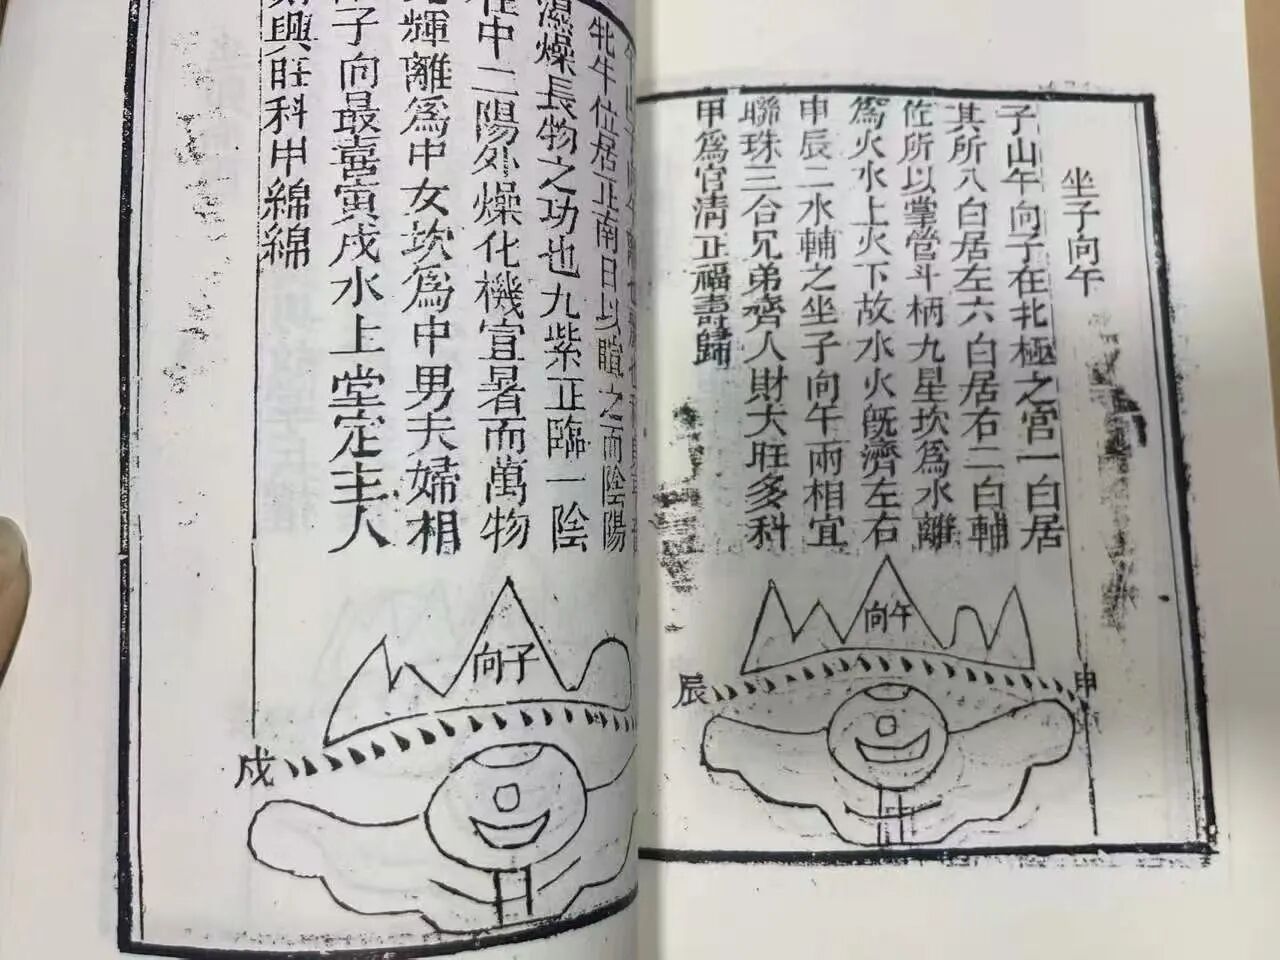 坐子向午
子山午向子在北極之宮一白居
其所八白居左六白居右二白輔
佐所以掌管斗柄九星坎為水離
為火水上火下故水火既濟左右
申辰二水輔之坐子向午兩相宜
聯珠三合兄弟齊人財大旺多科
甲為官清正福壽歸
向午
辰
申
牝牛位居正南日以暄之而陰陽
濕燥長物之功也九紫正臨一陰
在中二陽外燥化機宣暑而萬物
輝離為中女坎為中男夫婦相
子向最喜寅戌水上堂定主人
興旺科甲綿綿
向子
戌